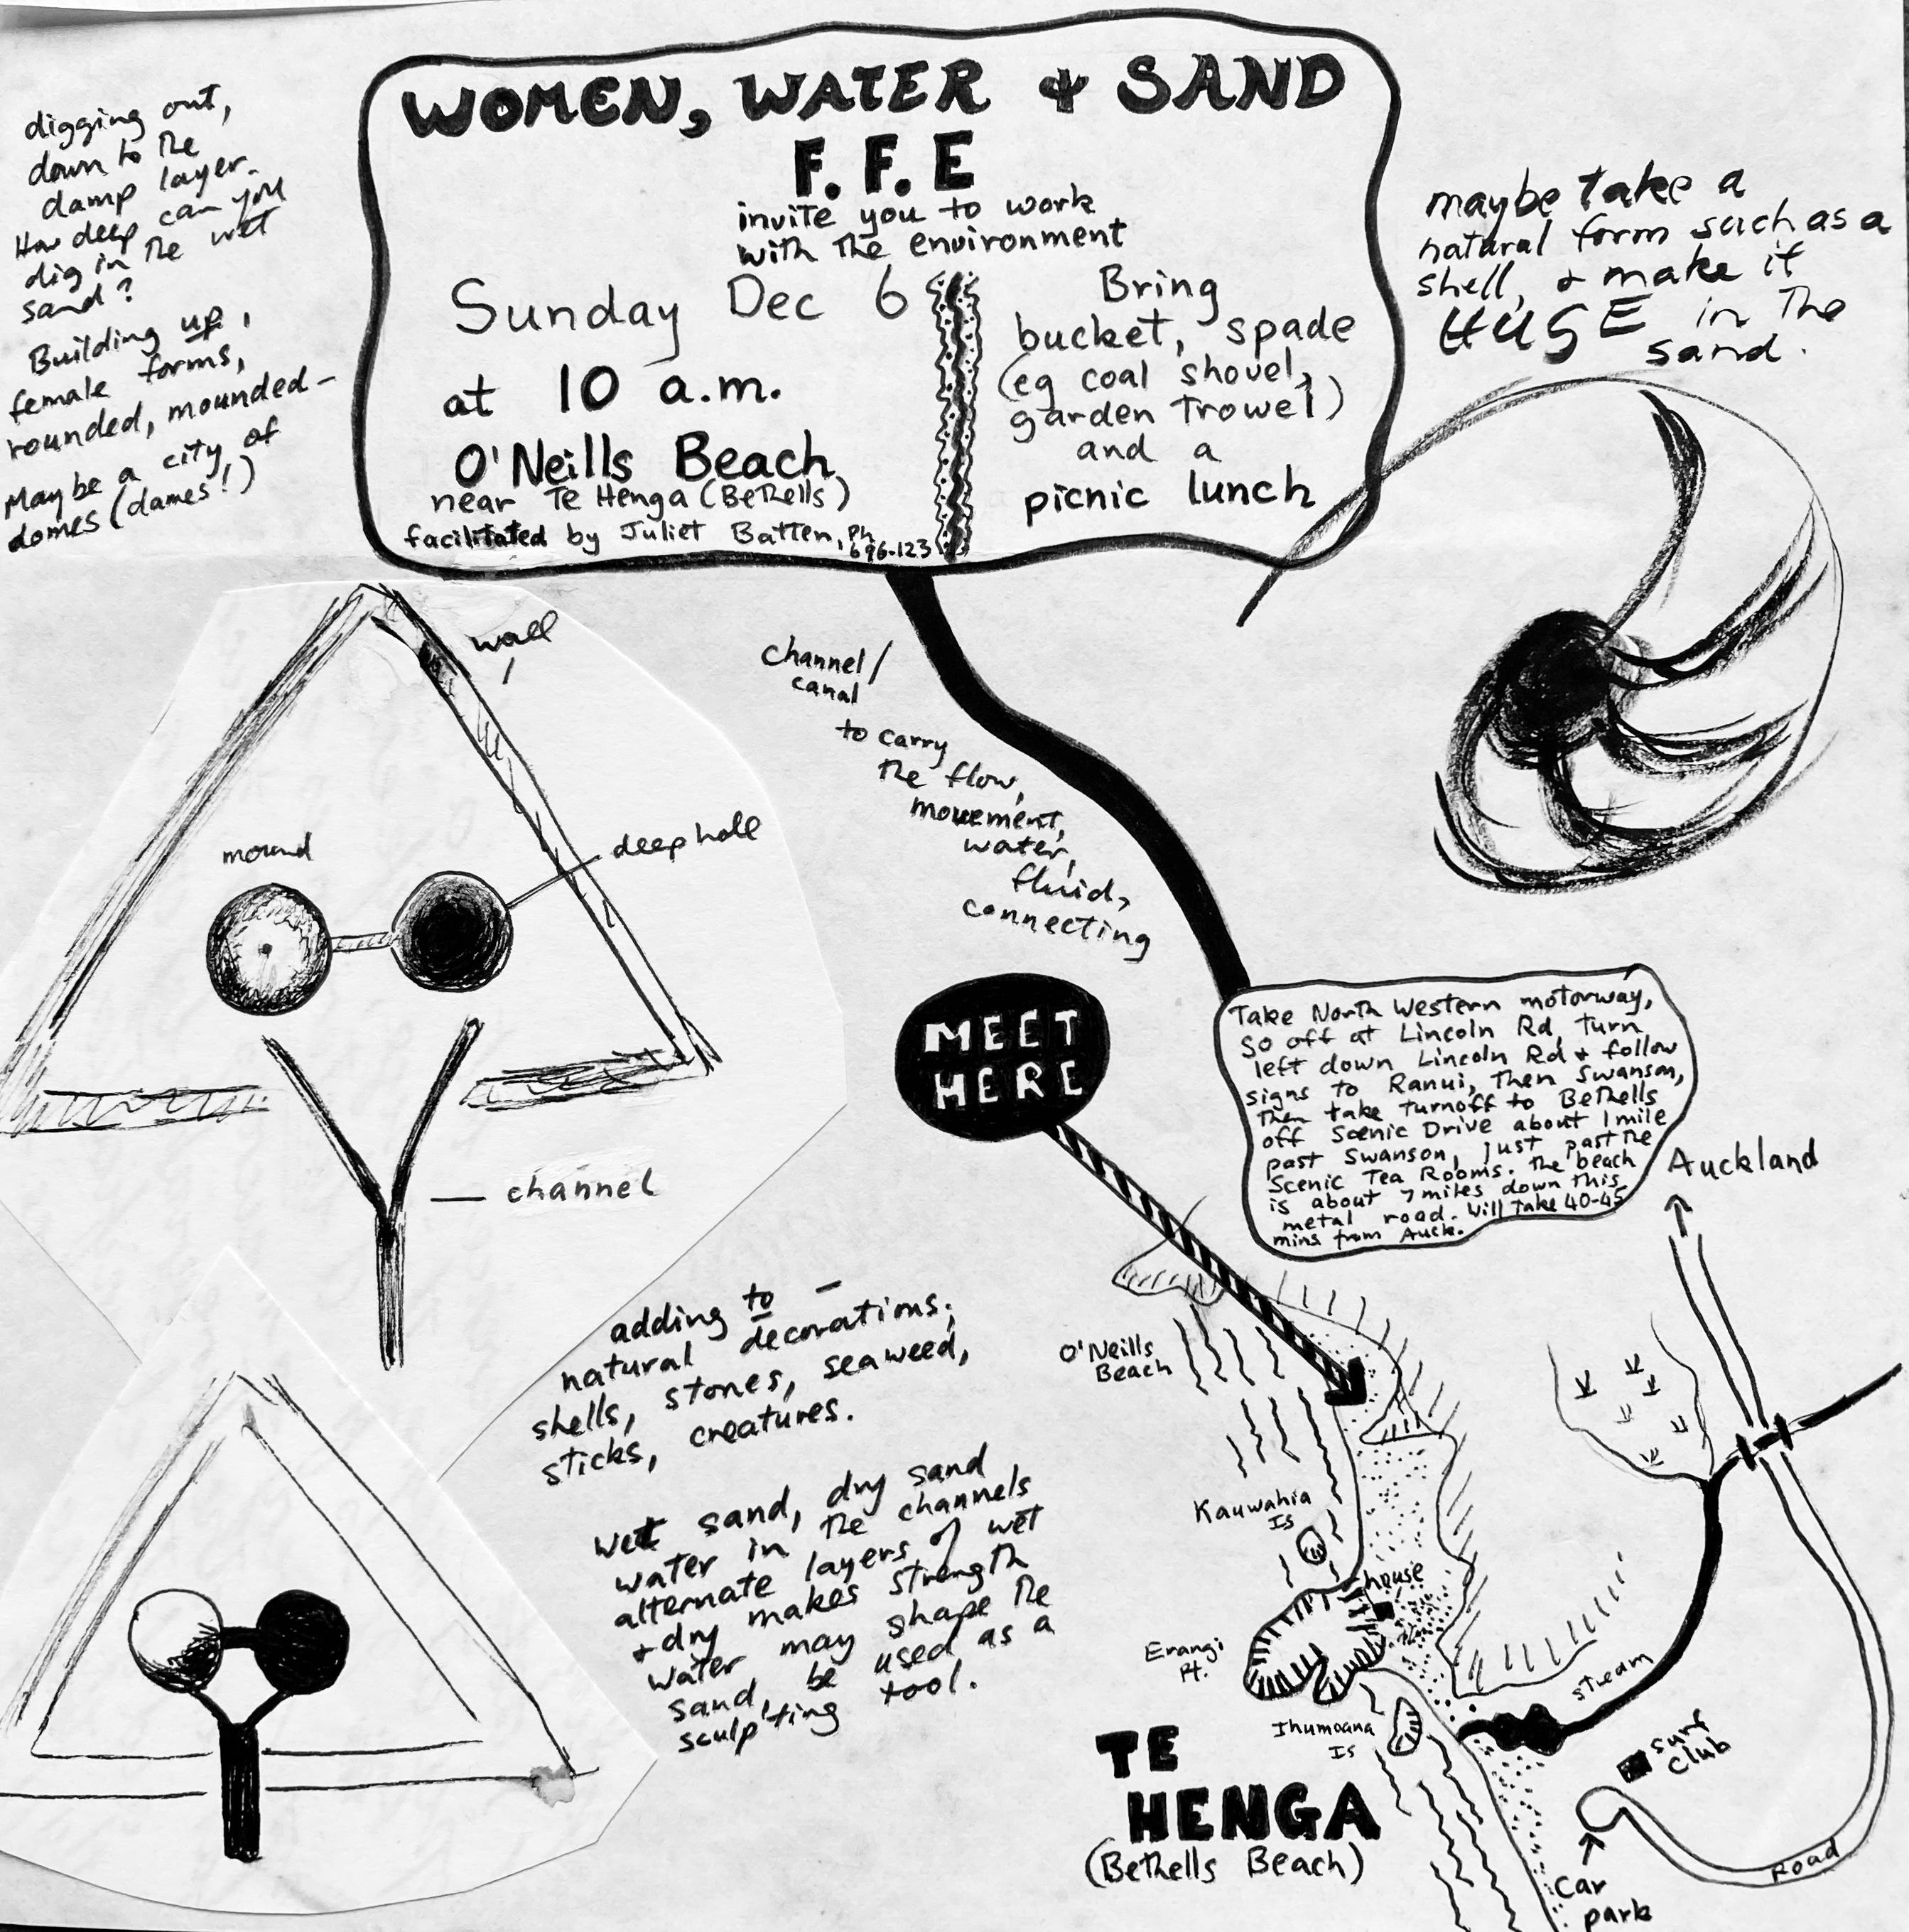 WOMEN, WATER & SAND
F.F.E
invite you to work
with the environment
Sunday Dec 6
at 10 a.m.
O'Neills Beach
near Te Henga (Bethells)
facilitated by Juliet Batten, Ph
696-123
Bring
bucket, spade
(eg coal shovel,
garden trowel)
and a
picnic lunch
digging out,
down to the
damp layer.
How deep can you
dig in the wet
sand?
Building up,
female forms,
rounded, mounded –
Maybe a city of
domes (dames!)
maybe take a
natural form such as a
shell, & make it
HUGE in the
sand.
wall
mound
deep hole
channel
channel/
canal
to carry
the flow,
movement,
water,
fluid,
connecting
MEET
HERE
Take North Western motorway,
go off at Lincoln Rd, turn
left down Lincoln Rd & follow
signs to Ranui, then Swanson,
then take turnoff to Bethells
off Scenic Drive about 1 mile
past Swanson, just past the
Scenic Tea Rooms. The beach
is about 7 miles down this
metal road. Will take 40-45
mins from Auck.
adding to –
natural decorations;
shells, stones, seaweed,
sticks, creatures.
wet sand, dry sand,
water in the channels
alternate layers of wet
& dry makes strength
water may shape the
sand, be used as a
sculpting tool.
Auckland
O'Neills
Beach
Kauwahia
Is
house
Erangi
Pt.
Ihumoana
Is
stream
surf
club
TE
HENGA
(Bethells Beach)
Road
Car
park